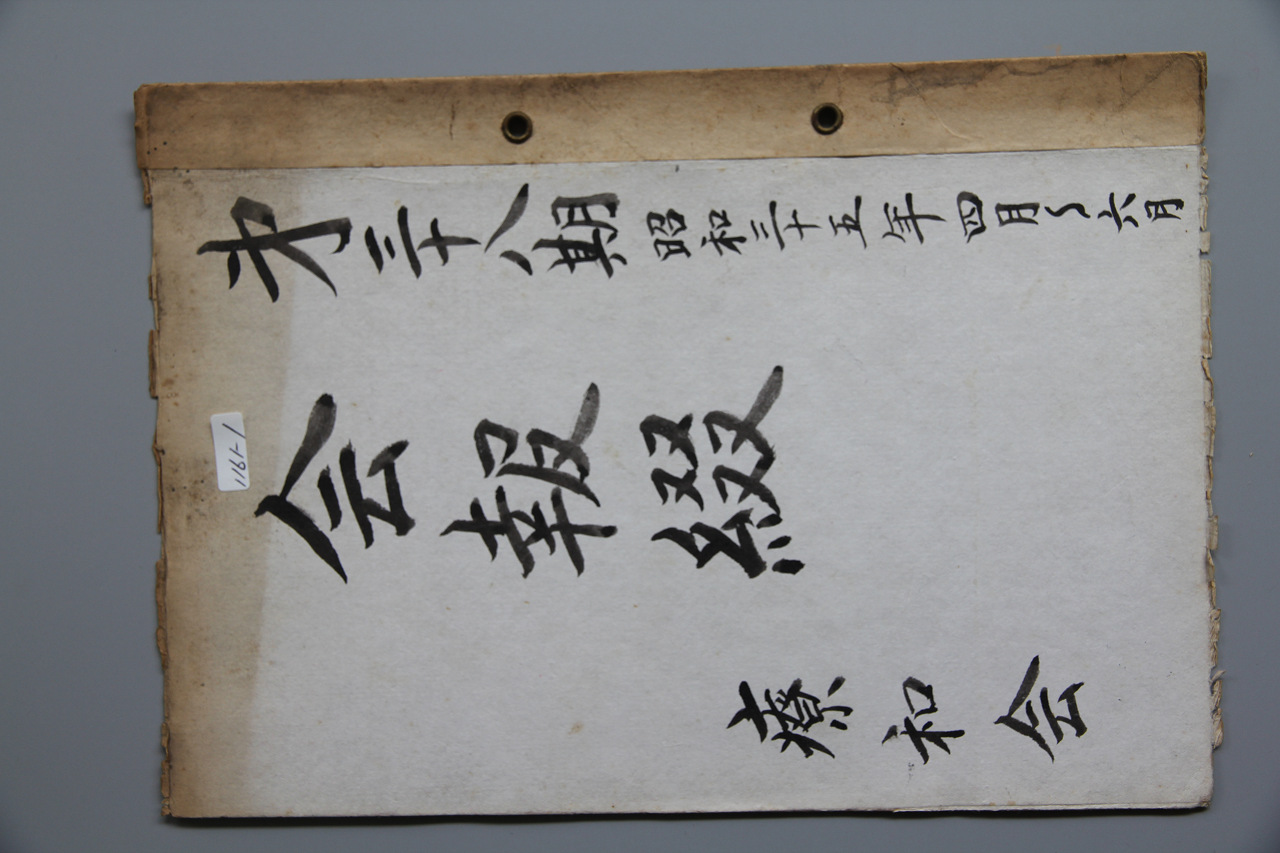 才三十八期 昭和三十五年四月〜六月
会報綴
療和会
1161-1